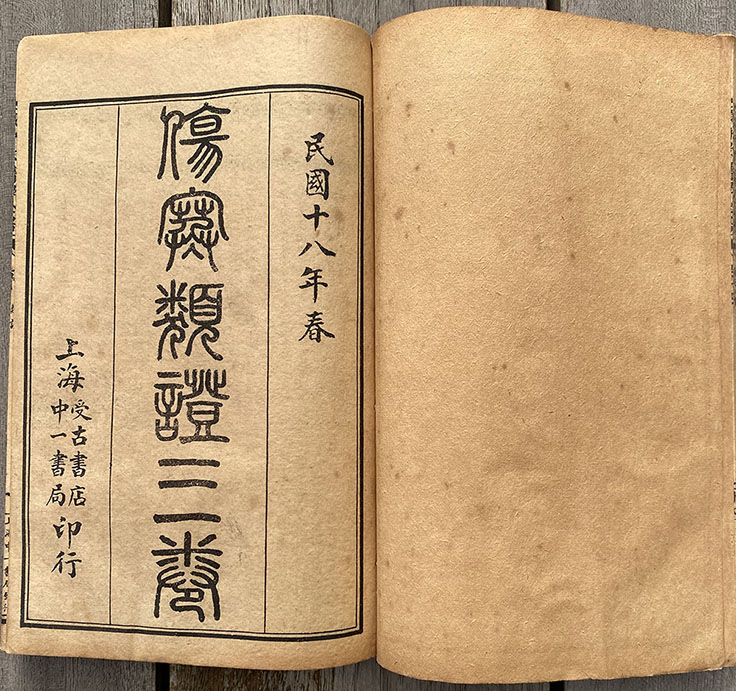 民國十八年春
傷寒類證三卷
上海
受古書店
中一書局
印行